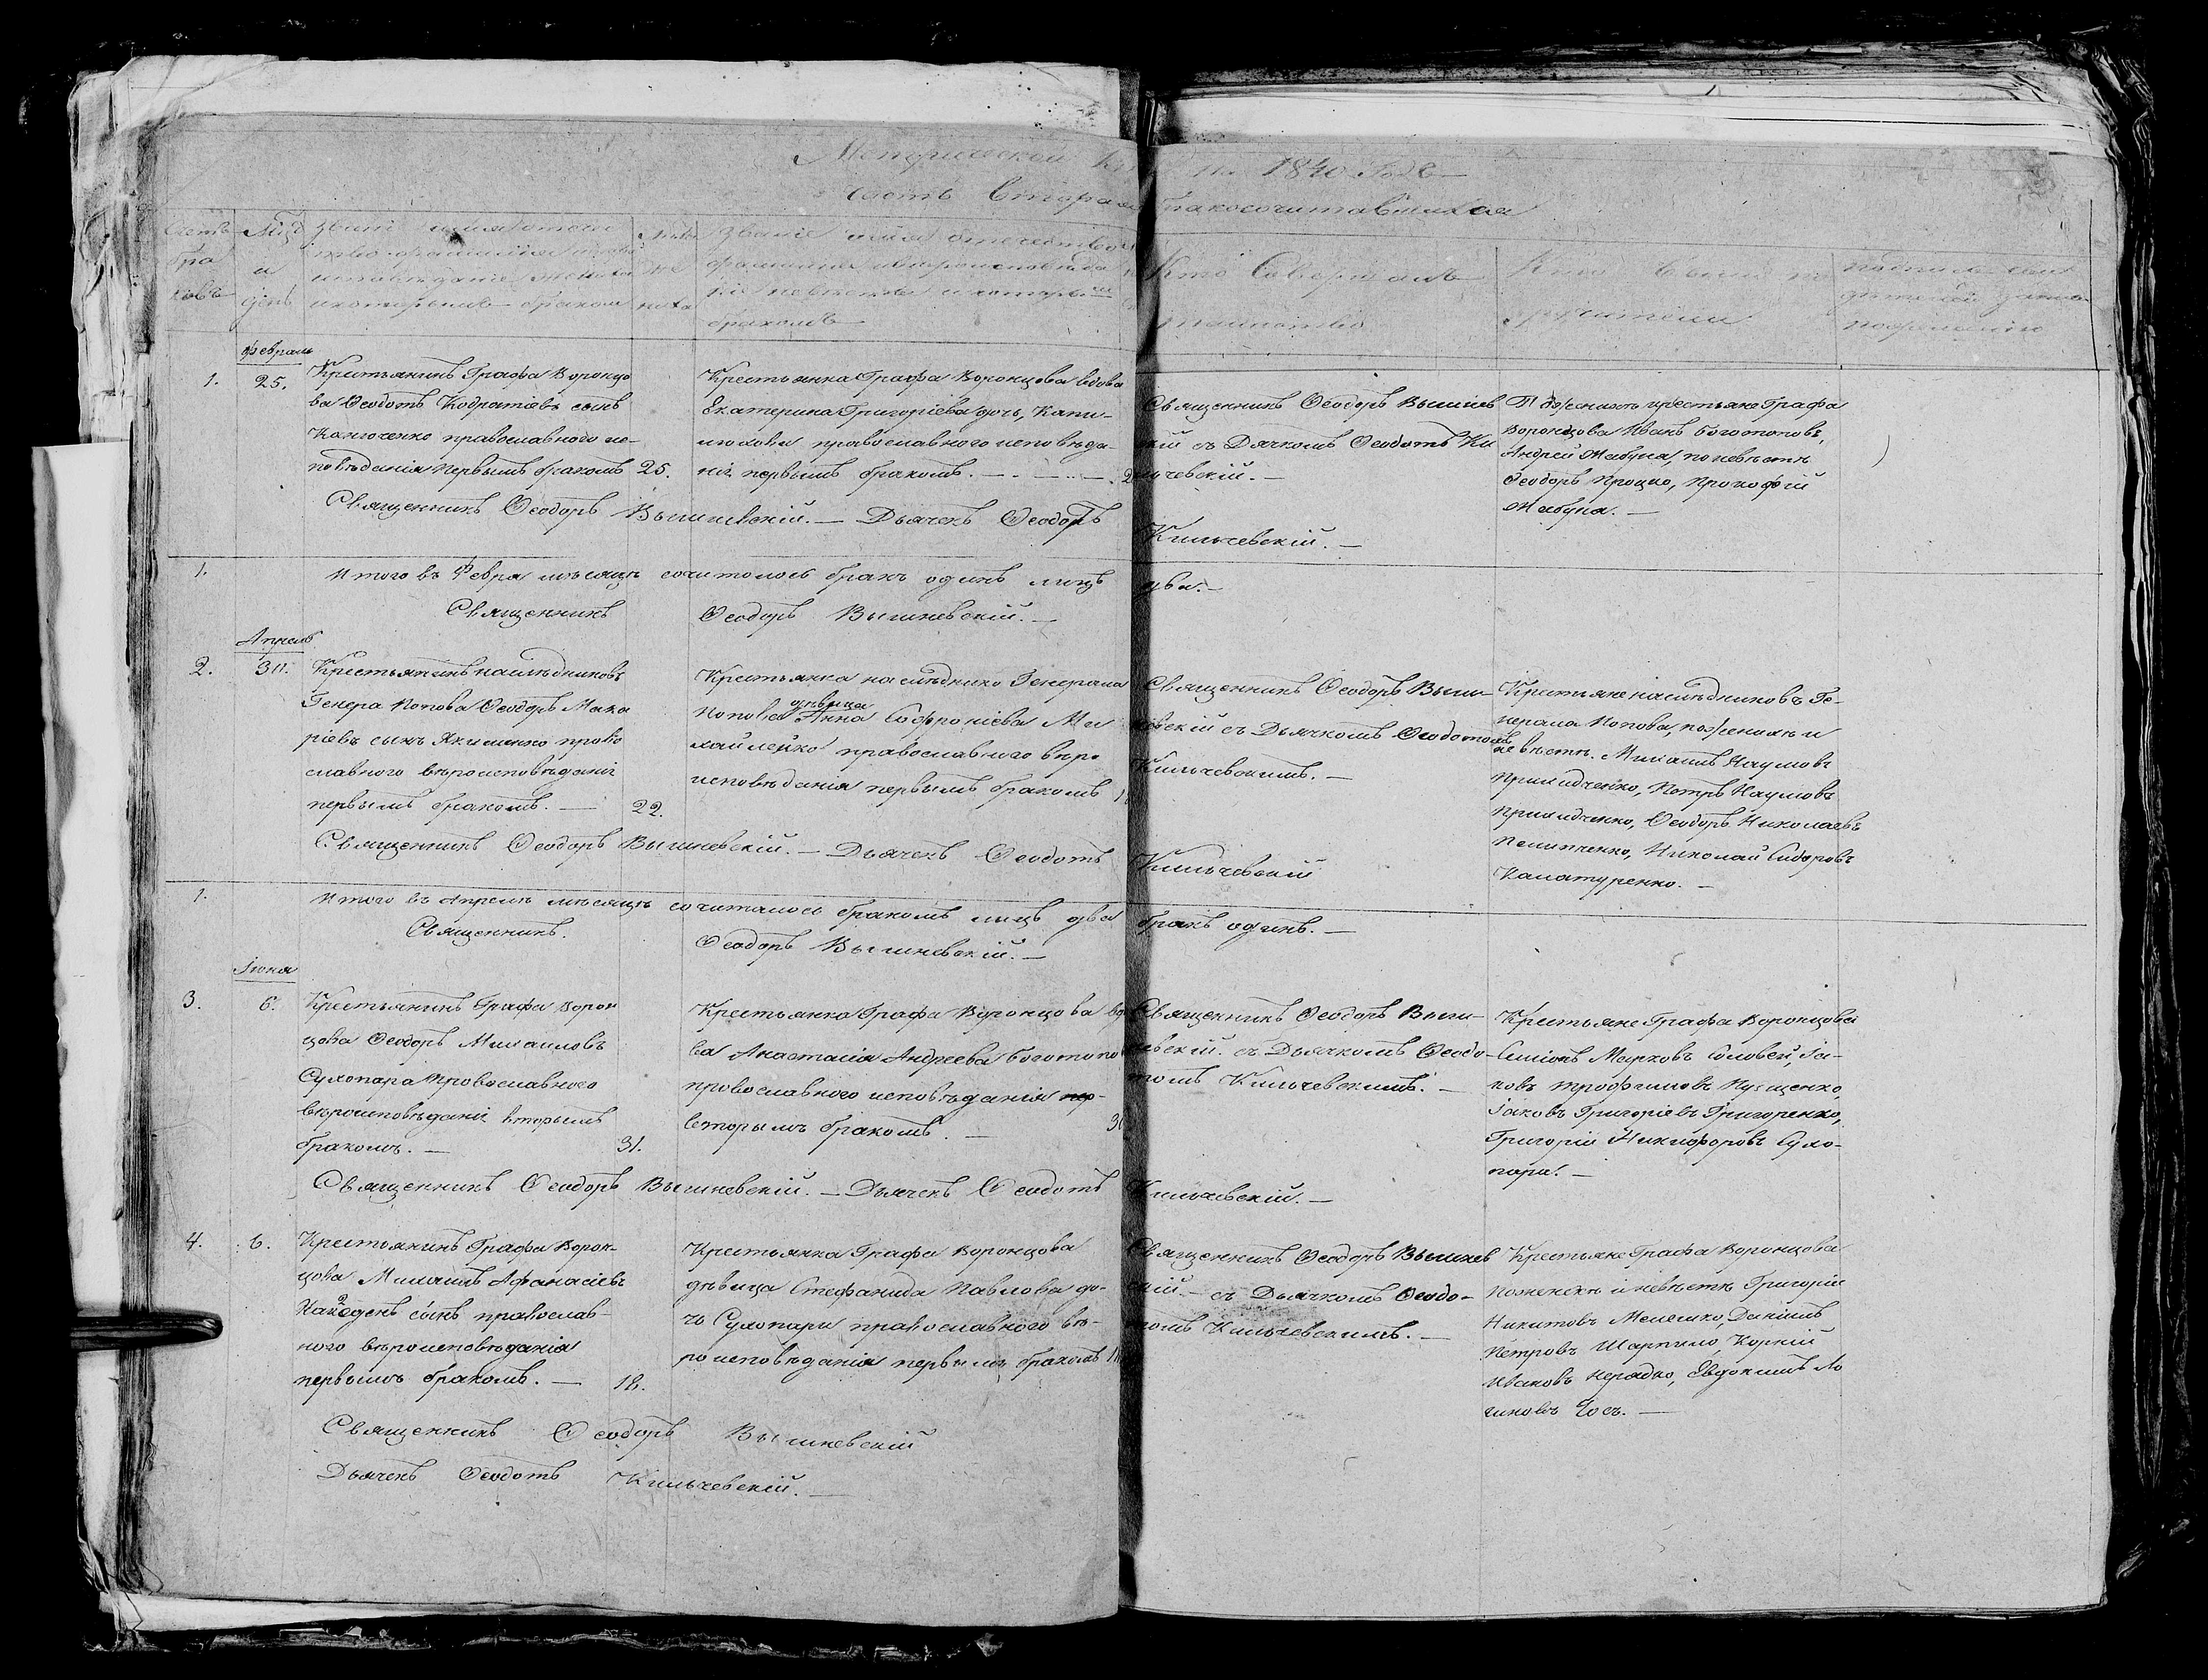 Метрической на 1840 Годъ
Часть Вторая Бракосочитавшихся
Счетъ браковъ
Мцъ и днь
Званіе имя отече
ство фамилія
исповѣданіе жениха
и которымъ бракомъ
Званіе имя отечество
фамилія и вѣроисповѣда
ніе невѣсты и которымъ
бракомъ
Кто Совершалъ
таинство
Кто были по
ручители
подпись сви
дѣтелей
Февраль
1. 25.
Крестьянинъ Графа Воронцо
ва Ѳеодотъ Кодратіевъ сынъ
Канюченко православного ис-
повѣданія первымъ бракомъ 25.
Крестьянка Графа Воронцова вдова
Екатерина Григоріева дочь,
православного исповѣда-
нія первымъ бракомъ.
Священникъ Ѳеодоръ Вышнев
скій съ Дячкомъ Ѳеодотъ Ки
льчевскій.
По женихѣ крестьяне Графа
Воронцова Иванъ Боготоповъ,
Андрей Жабуна, по невѣсте
Ѳеодоръ Процко, Прокофій
Жабуна.
Священникъ Ѳеодоръ Вышневскій. — Дьячекъ Ѳеодотъ Кильчевскій. —
1. Итого въ Февра мѣсяцѣ сочиталось бракъ одинъ лицъ два. —
Священникъ Ѳеодоръ Вышневскій. —
Апрель
2. 30.
Крестьянинъ наслѣдниковъ
Генера Попова Ѳеодоръ Мака
ріевъ сынъ Якименко право
славного вѣроисповѣданія
первымъ бракомъ. — 22.
Крестьянка наслѣднико Генерала
Попова дѣвица Анна Софроніева Ми
хайленко православного вѣро
исповѣданія первымъ бракомъ
Священникъ Ѳеодоръ Выш-
невскій съ Дьячкомъ Ѳеодотомъ
Кильчевскимъ. —
Крестьяне наслѣдниковъ Ге-
нерала Попова, по женихѣ и
невѣсте. Михаилъ Наумовъ
Прилидченко, Петръ Наумовъ
Прилидченко, Ѳеодоръ Николаевъ
Пелипченко, Николай Сидоровъ
Каматуренко. —
Священникъ Ѳеодоръ Вышневскій. — Дьячекъ Ѳеодотъ Кильчевскій
1. Итого въ Апрелѣ мѣсяцѣ сочиталось бракомъ лицъ два бракъ одинъ. —
Священникъ. Ѳеодоръ Вышневскій. —
Іюня
3. 6.
Крестьянинъ Графа Ворон
цова Ѳеодоръ Михаиловъ
Сухопара Православного
вѣроисповѣданія вторымъ
бракомъ. — 31.
Крестьянка Графа Воронцова вдо
ва Анастасія Андреева Боготопо
православного исповѣданія пер-
вторымъ бракомъ. —
Священникъ Ѳеодоръ Выш-
невскій. съ Дьячкомъ Ѳеодо-
томъ Кильчевскимъ. —
Крестьяне Графа Воронцова
Симіонъ Марковъ Соловей, Іа-
ковъ Трофимовъ Пущенко,
Іаковъ Григоріевъ Григоренко,
Григорій Никифоровъ Сухо-
пара. —
Священникъ Ѳеодоръ Вышневскій. — Дьячекъ Ѳеодотъ Кильчевскій. —
4. 6.
Крестьянинъ Графа Ворон-
цова Михаилъ Афанасіевъ
Найденъ сынъ православ-
ного вѣроисповѣданія
первымъ бракомъ. — 18.
Крестьянка Графа Воронцова
дѣвица Стефанида Павлова до-
чь Сухопары православного вѣ-
роисповѣданія первымъ бракомъ
Священникъ Ѳеодоръ Вышнев
скій. — съ Дьячкомъ Ѳеодо-
томъ Кильчевскимъ. —
Крестьяне Графа Воронцова
По женихѣ и невѣстѣ Григорій
Никитовъ Мелешко, Даніилъ
Петровъ Шарпило, Корній
Ивановъ Нерадко, Евдокимъ Ло
гиновъ Чосъ. —
Священникъ Ѳеодоръ Вышневскій
Дьячекъ Ѳеодотъ Кильчевскій. —